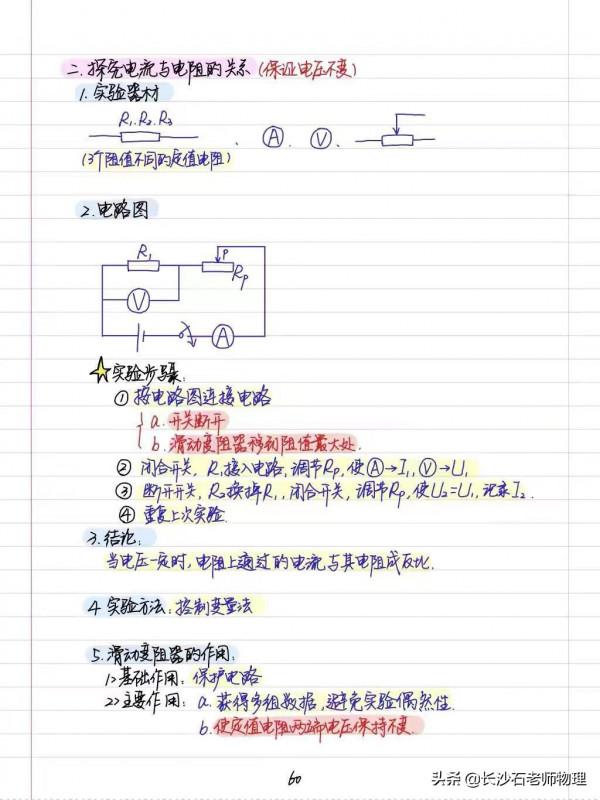 二.探究电流与电阻的关系(保证电压不变)
1.实验器材
R₁.R₂.R₃
A
V
(3个阻值不同的定值电阻)
2.电路图
R₁
P
Rp
V
A
实验步骤:
① 按电路图连接电路
a.开关断开
b.滑动变阻器移到阻值最大处.
② 闭合开关,R₁接入电路,调节Rp,使Ⓐ→I₁,Ⓥ→U₁
③ 断开开关,R₂换掉R₁,闭合开关,调节Rp,使U₂=U₁,记录I₂.
④ 重复上次实验.
3.结论:
当电压一定时,电阻上通过的电流与其电阻成反比.
4 实验方法:控制变量法
5.滑动变阻器的作用:
1>基础作用:保护电路
2>主要作用: a.获得多组数据,避免实验偶然性.
b.使定值电阻两端电压保持不变.
60
头条 @长沙石老师物理